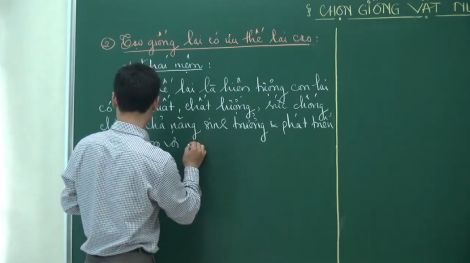 § CHỌN GIỐNG VẬT NU
② Tạo giống lai có ưu thế lai cao:
Khái niệm:
thế lai là hiện tượng con lai
có suất, chất lượng, sức chống
khả năng sinh trưởng & phát triển
với